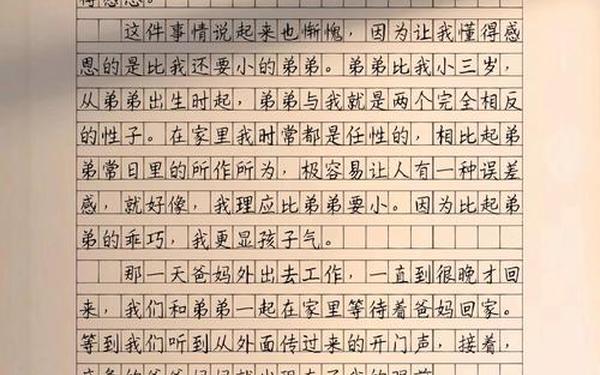 得感恩。
这件事情说起来也惭愧，因为让我懂得感
恩的是比我还要小的弟弟。弟弟比我小三岁，
从弟弟出生时起，弟弟与我就是两个完全相反
的性子。在家里我时常都是任性的，相比起弟
弟常日里的所作所为，极容易让人有一种误差
感，就好像，我理应比弟弟要小。因为比起弟
弟的乖巧，我更显孩子气。
那一天爸妈外出去工作，一直到很晚才回
来，我们和弟弟一起在家里等待着爸妈回家。
等到我们听到从外面传过来的开门声，接着，
的爸爸妈妈就出现在了我的眼前